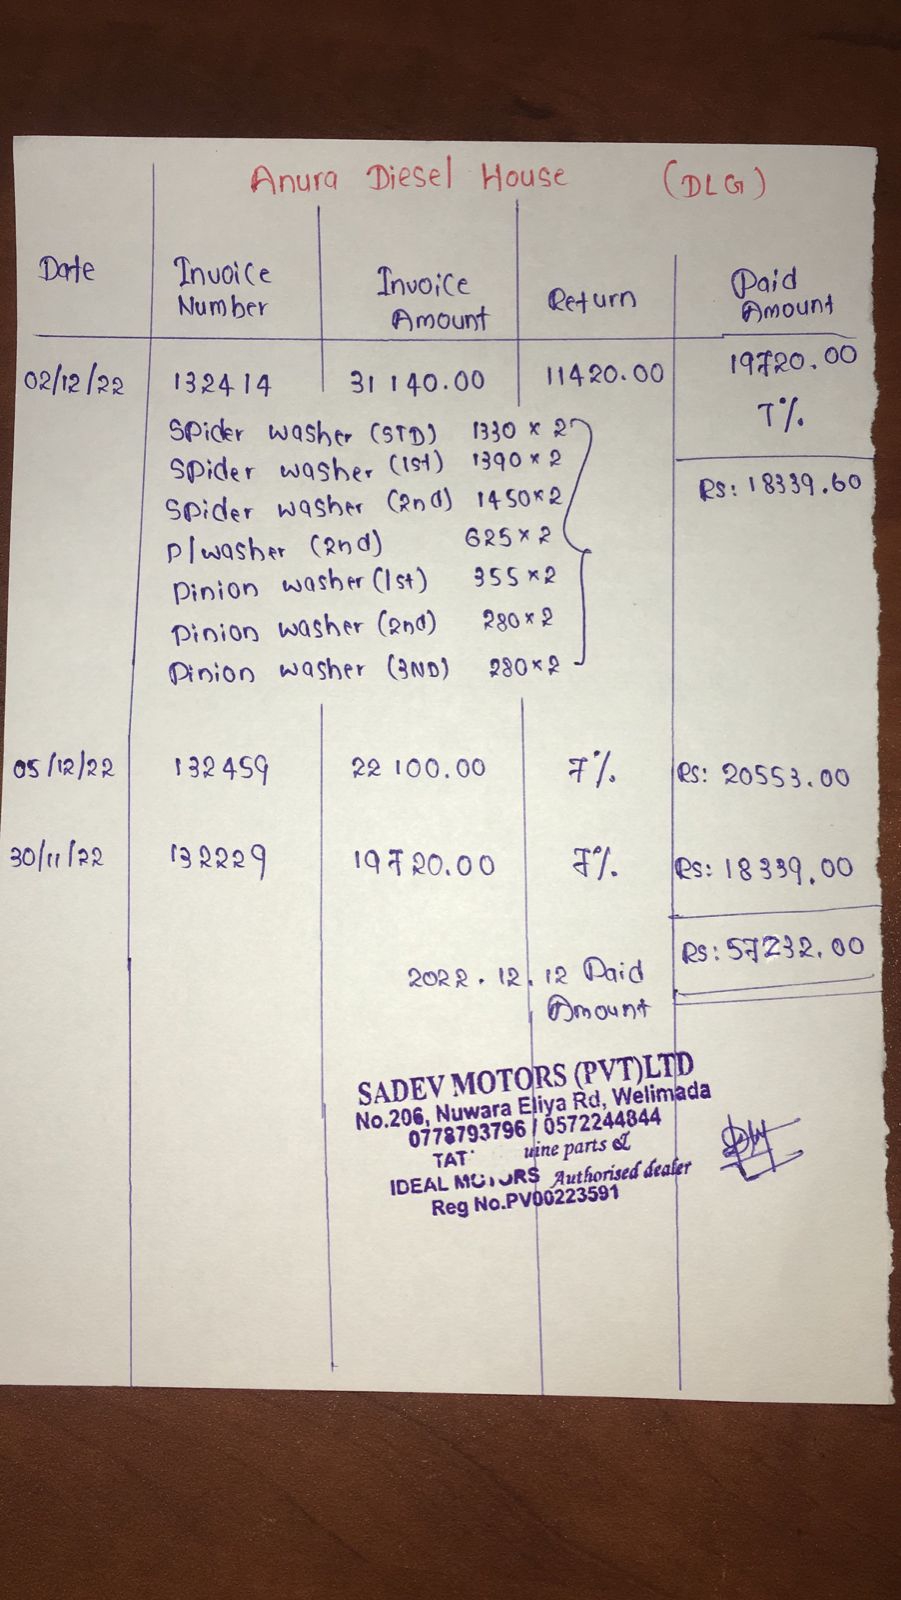 Anura Diesel House (DLG)
Date Invoice Number Invoice Amount Return Paid Amount
02/12/22 132414 31140.00 11420.00 19720.00
7%
Spider washer (STD) 1330 × 2
Spider washer (1st) 1390 × 2
Rs: 18339.60
Spider washer (2nd) 1450 × 2
P/washer (2nd) 625 × 2
Pinion washer (1st) 355 × 2
Pinion washer (2nd) 280 × 2
Pinion washer (3ND) 280 × 2
05/12/22 132459 22100.00 7% Rs: 20553.00
30/11/22 132229 19720.00 7% Rs: 18339.00
Rs: 57232.00
2022.12.12 Paid
Amount
SADEV MOTORS (PVT)LTD
No.206, Nuwara Eliya Rd, Welimada
0778793796 / 0572244844
parts &
IDEAL MOTORS Authorised dealer
Reg No.PV00223591